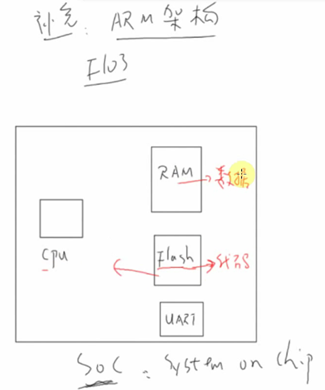 补充: ARM架构
F103
RAM → 数据
Cpu
Flash → 代码
UART
SOC: System on chip